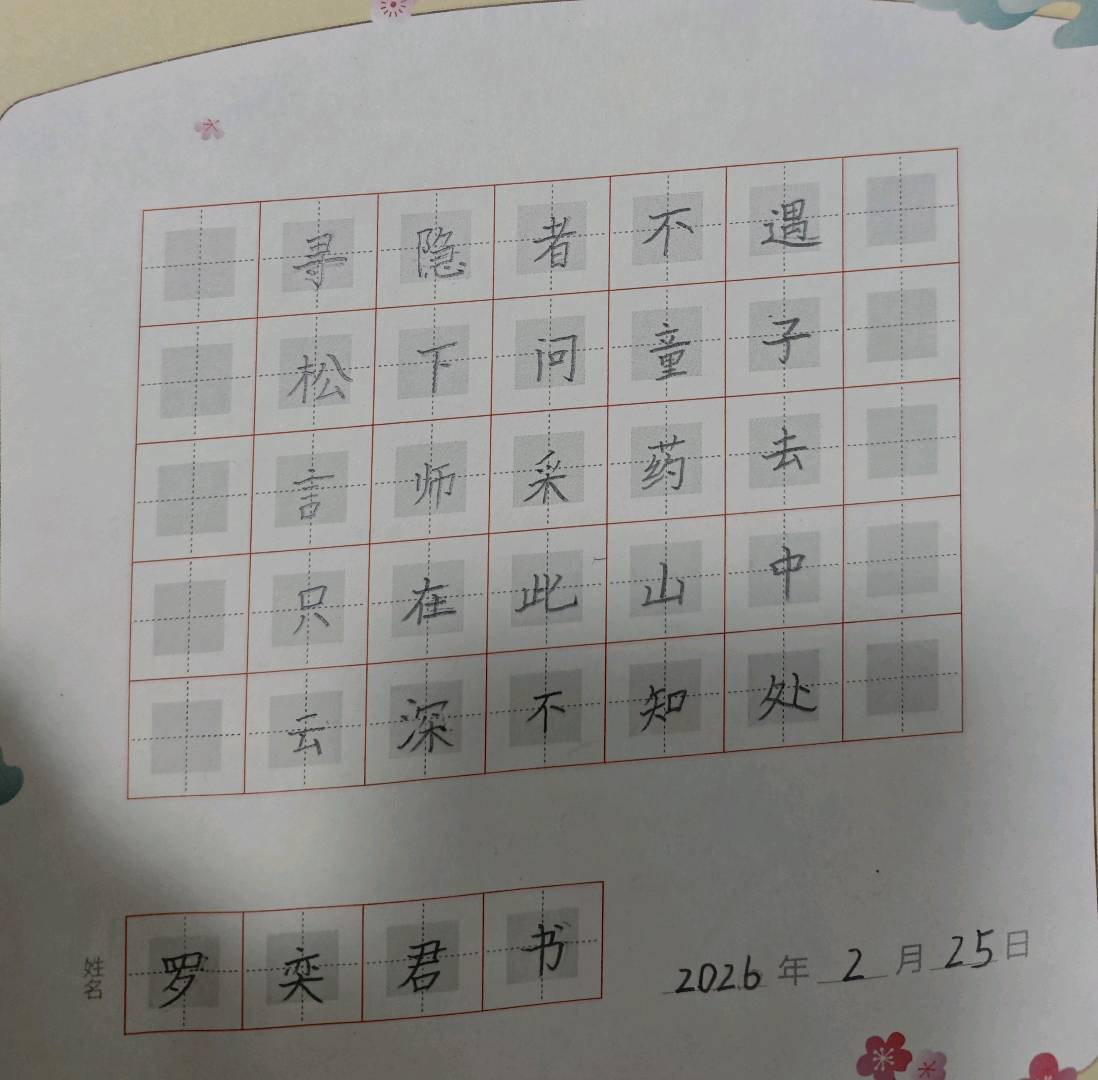 寻隐者不遇
松下问童子
言师采药去
只在此山中
云深不知处
姓名 罗奕君书
2026年2月25日